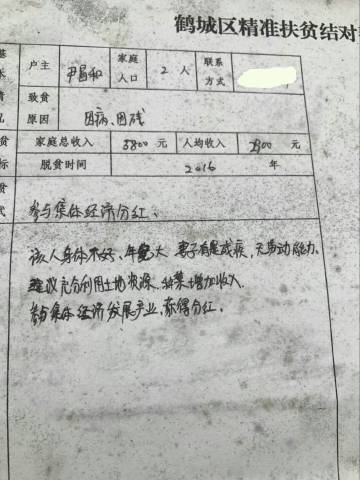 鹤城区精准扶贫结对
基本情况 户主 尹昌和 家庭人口 2 人 联系方式
致贫原因 因病、因残
家庭总收入 5800 元 人均收入 2900 元
脱贫时间 2016 年
参与集体经济分红、
该人身体不好、年纪大 妻子有尾残疾,无劳动能力,
建议充分利用土地资源 种菜增加收入
参与集体经济发展产业,获得分红.